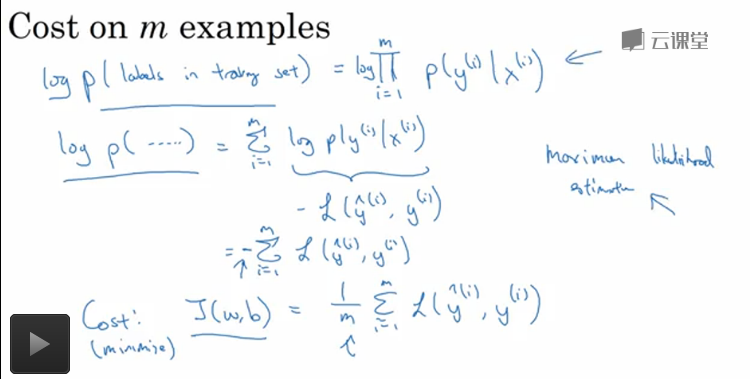 Cost on m examples
云课堂
log p(labels in training set) = log ∏_{i=1}^{m} p(y^{(i)}|x^{(i)}) ←
log p(.....) = ∑_{i=1}^{m} log p(y^{(i)}|x^{(i)})
Maximum likelihood
estimation
- ℒ(ŷ^{(i)}, y^{(i)})
= -∑_{i=1}^{m} ℒ(ŷ^{(i)}, y^{(i)})
Cost: J(w,b) = 1/m ∑_{i=1}^{m} ℒ(ŷ^{(i)}, y^{(i)})
(minimize)